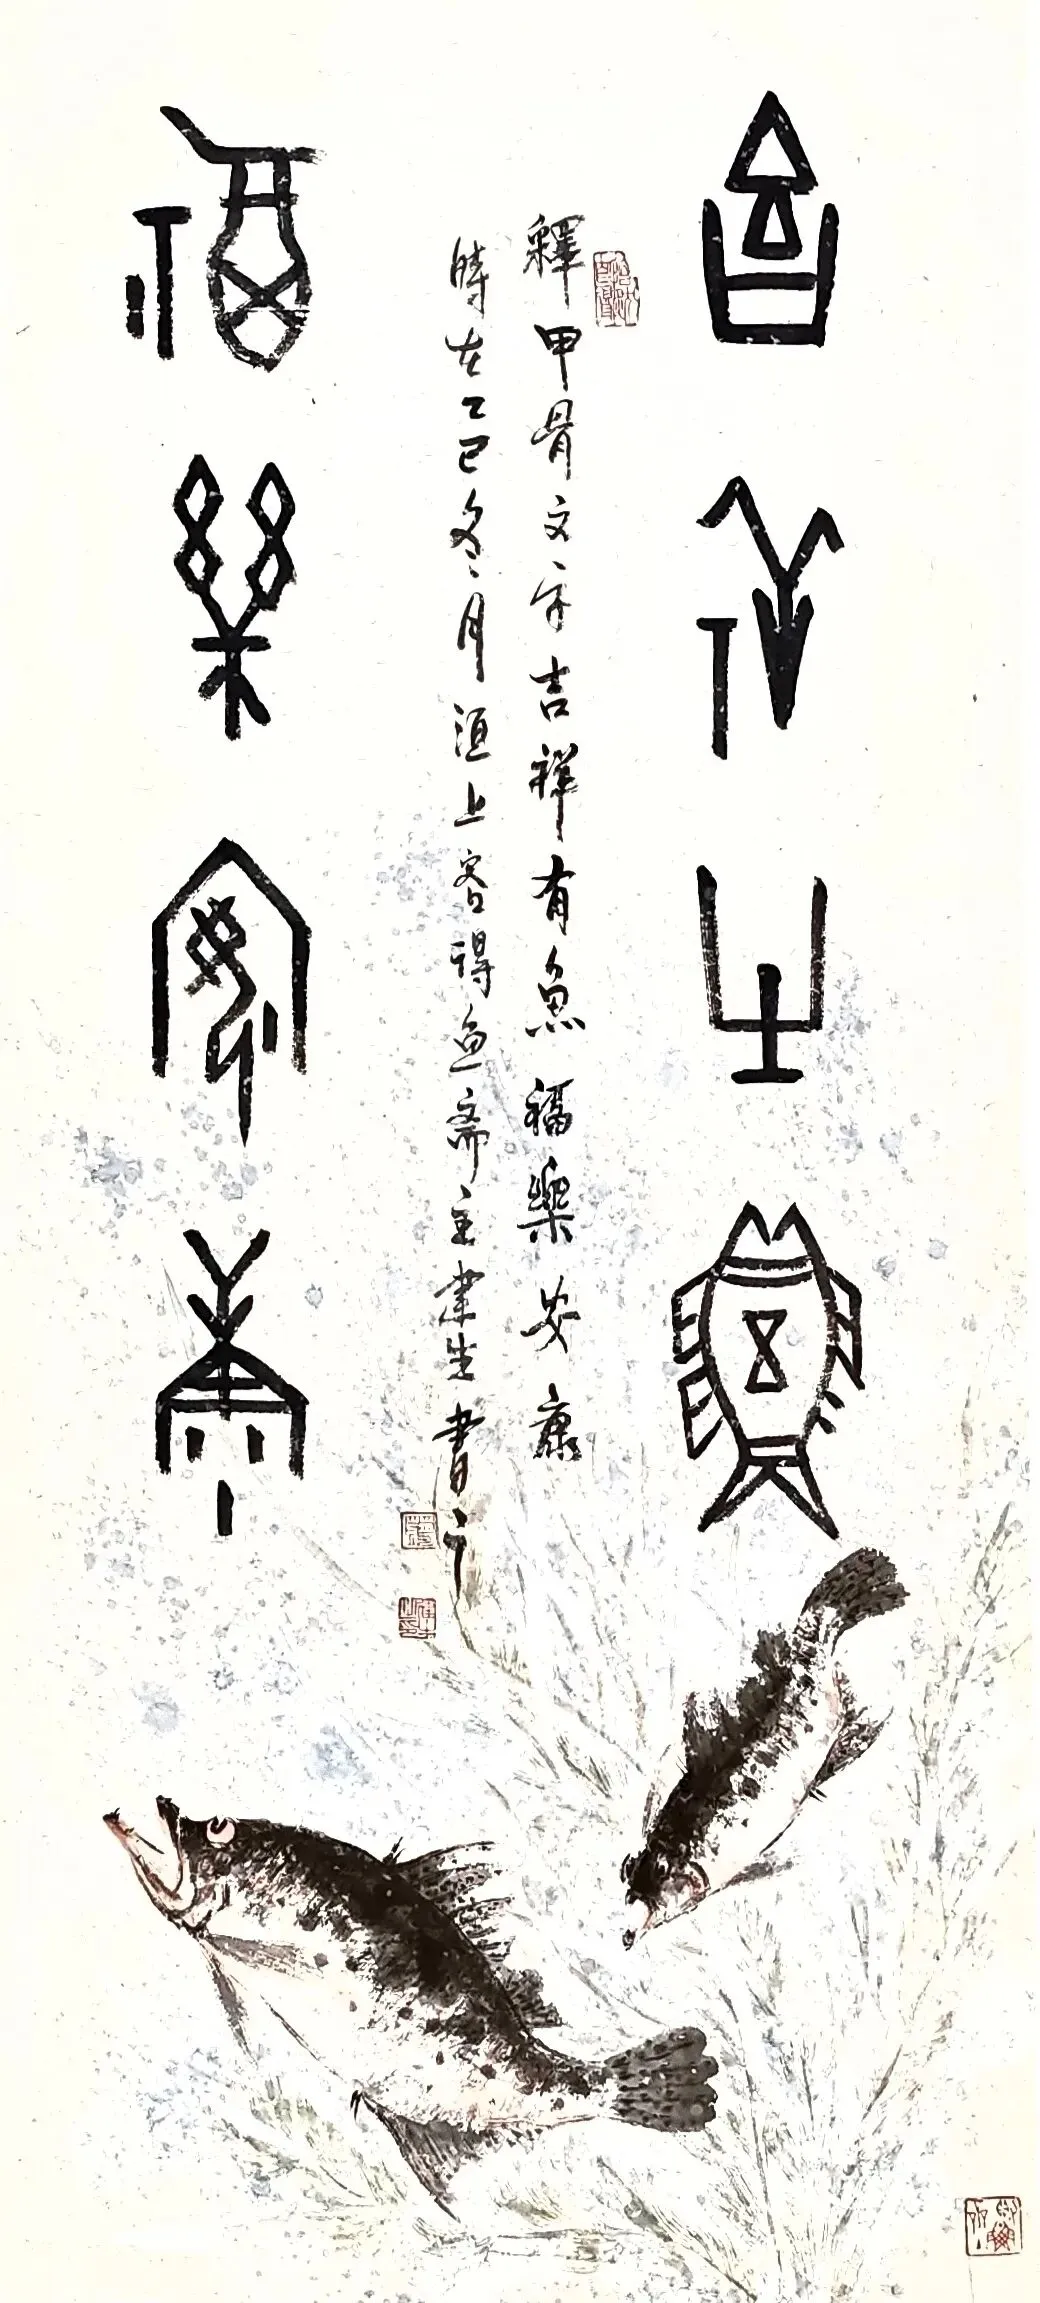 吉祥有魚
釋甲骨文字吉祥有魚福樂安康
時在乙巳冬月洹上客得魚斋主聿生書之
福樂安康